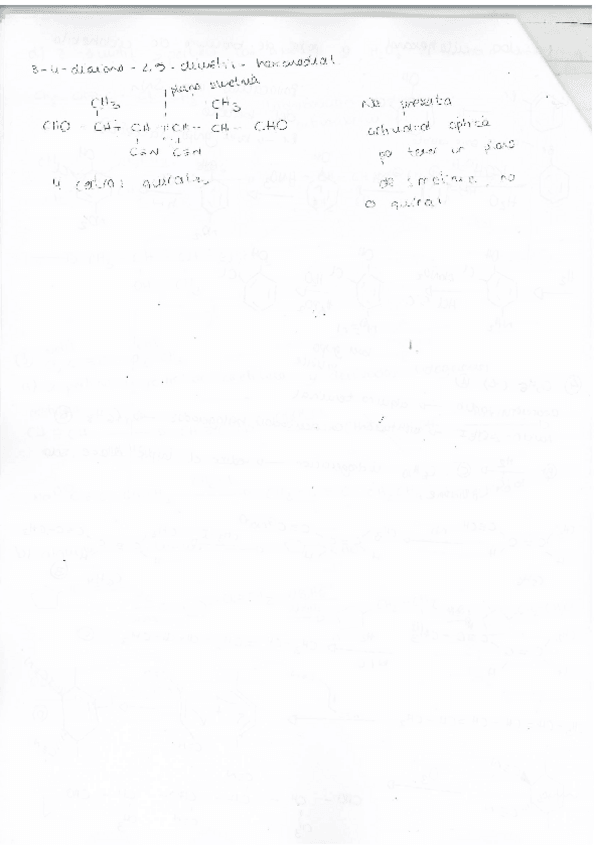 3-4-diciano-2,5-dimetil-hexanodial
plano simetría
CH3 CH3
CHO - CH - CH - CH - CH - CHO
C≡N C≡N
4 centros quirales
No presenta
actividad óptica
por tener un plano
de simetría, no
quiral